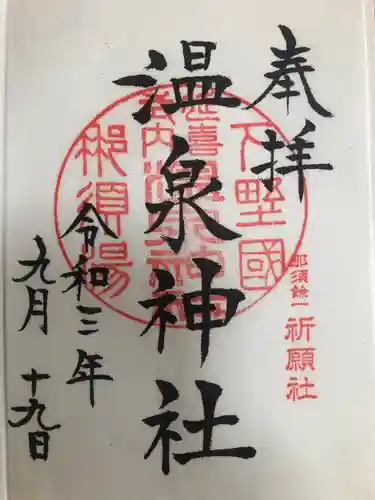 奉拝
下野國
延喜
式内温泉神社
那須湯
温泉神社
那須餘一
祈願社
令和三年
九月十九日